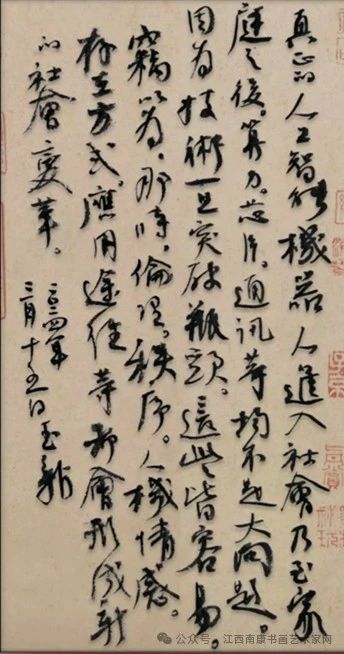 真正的人工智能機器人進入社會乃至家
庭之後。算力。芯片。通訊等均不是大問題。
因為技術一旦突破瓶頸。這些皆容易。
竊以為,那時,倫理。秩序。人機情感。
存在方式。應用途徑等都會形成新
的社會變革。
二〇二四年
三月十五日玉
公众号 · 江西南康书画艺术家网